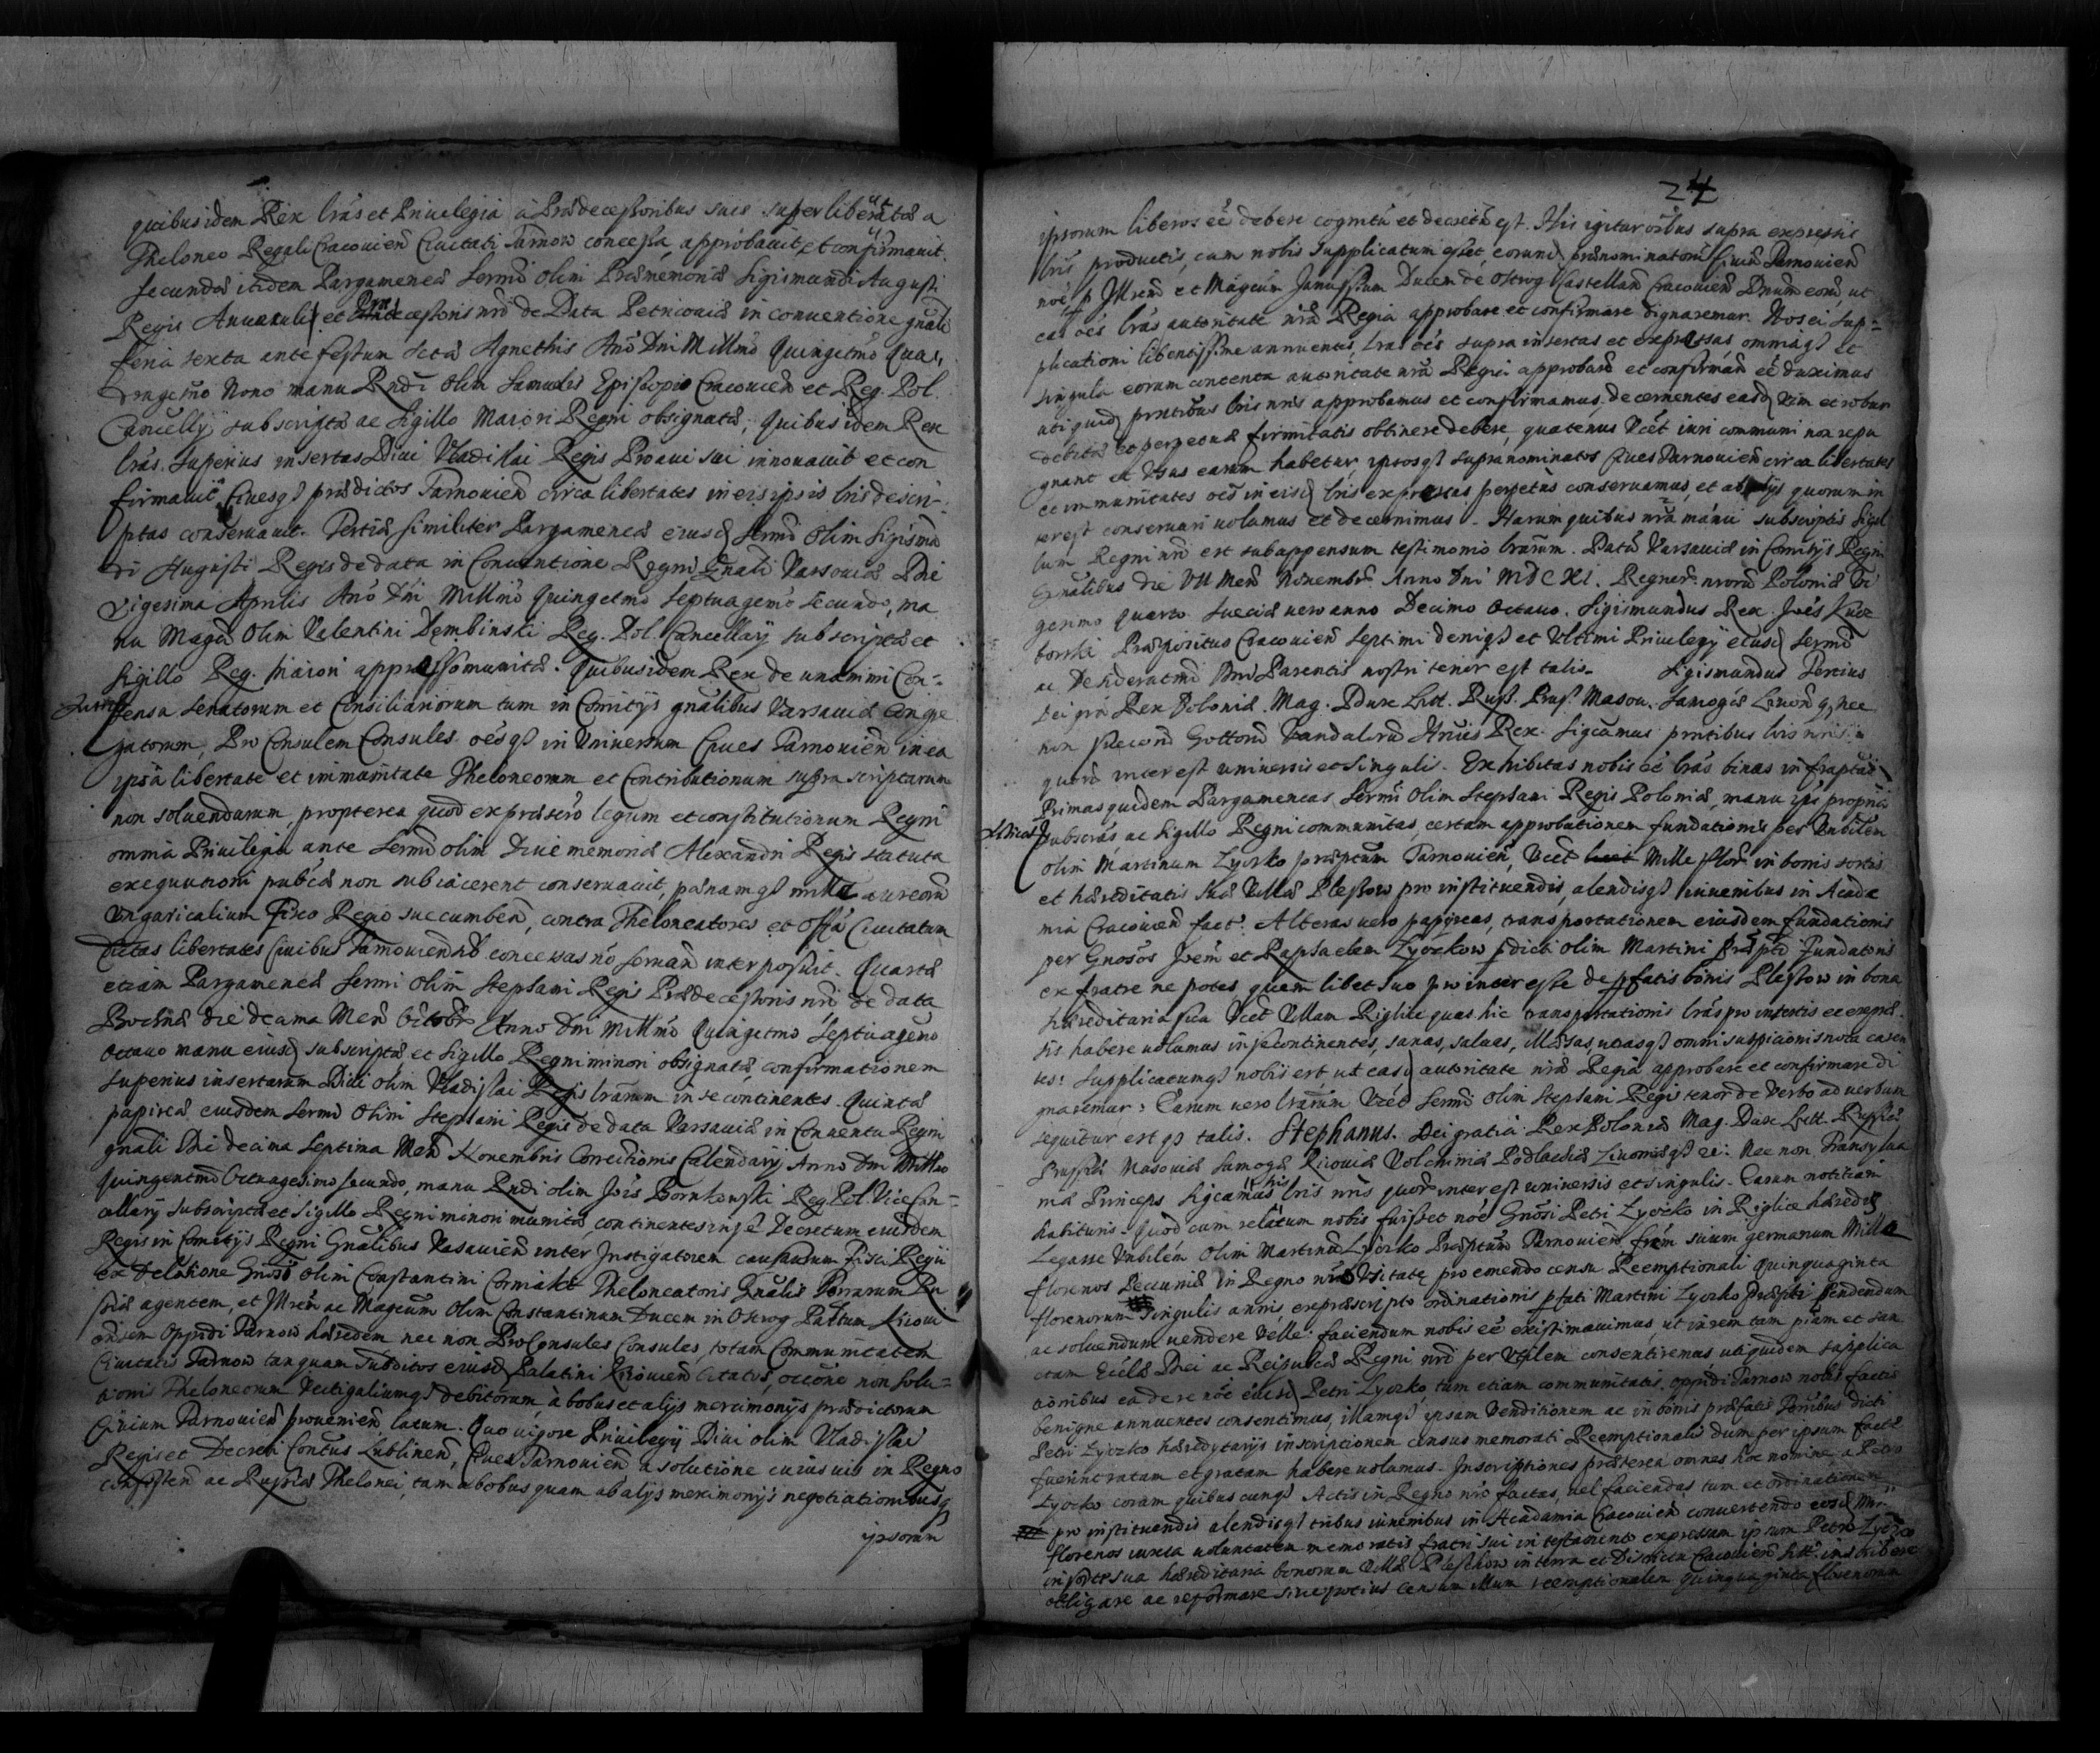 quibus idem Rex lrás et Priuilegia à Prædecessoribus suis super libertate a
Theloneo Regali Cracouien Ciuitati Tarnow concessa, approbauit, et confirmauit.
secundæ itidem Pargameneæ Sermi olim Præmemoriæ Sigismundi Augusti
Regis Auunculi et Prædecessoris nrí de Data Petricouiæ in conuentione gnáli
feria sexta ante festum Sctæ Agnethis Anó Dni Millmó Quingetmó Qua-
dragesmó Nono manu Rndi olim Samuelis Episcopi Cracouien et Reg. Pol.
Cancellarij subscriptæ ac Sigillo Maiori Regni obsignatæ, quibus idem Rex
lrás superius insertas Diui Vladislai Regis Proaui sui innouauit et con
firmauit, Ciuesq prædictos Tarnouien circa libertates in eis ipsis lris descri-
ptas conseruauit. Tertiæ similiter Pargameneæ eiusd Sermi olim Sigismú
di Augusti Regis de data in Conuentione Regni Gnali Varsouiæ Die
vigesima Aprilis Anó Dni Millmó Quingetmó Septuagemó Secundo, ma
nu Magci olim Valentini Dembinski Reg. Pol. Cancellarij subscriptæ et
Sigillo Reg. Maiori appresso munitæ. Quibus idem Rex de unanimi Con-
sensu Senatorum et Consiliariorum tum in Comitijs gnálibus Varsauiæ Congre
gatorum, Pro Consulem Consules oésq in Vniuersum Ciues Tarnouien in ea
ipsa libertate et immunitate Theloneorum et Contributionum supra scriptarum
non soluendarum, propterea quod ex præscró legum et constitutionum Regni
omnia Priuilegia ante Sermi olim Diuæ memoriæ Alexandri Regis statuta
exequutioni publicæ non subiacerent conseruauit, pænamq mille aureorú
Vngaricalium Fisco Regio succumben, contra Theloneatores et Offá Ciuitatum
dictas libertates Ciuibus Tarnouiensib concessas nó seruan interposuit. Quartæ
etiam Pargameneæ Sermi olim Stephani Regis Prædecessoris nrí de data
Bochniæ die decima Men Octobr Anno Dni Millmó Quingetmo Septuagemo
Octauo manu eiusd subscriptæ et Sigillo Regni minori obsignatæ, confirmationem
superius insertarum Diui olim Vladislai Regis lrarum in se continentes. Quintæ
papireæ eiusdem Sermi olim Stephani Regis de data Varsauiæ in Conuentu Regni
gnali Die decima Septima Men Nouembris Correctionis Calendarij Anno Dni Millmo
Quingentmó Octuagesimo secundo, manu Rndi olim Joís Bornkowski Reg Pol Vicecan-
cellarij subscriptæ et Sigillo Regni minori munitæ, continentes in se Decretum eiusdem
Regis in Comitijs Regni Gnálibus Vasauien inter Instigatorem causarum Fisci Regii
ex Delatione Gnósi olim Constantini Corniakt Theloneatoris Gnális Terrarum Ru
ssiæ agentem, et Illrém ac Magcúm olim Constantinum Ducem in Ostrog Palatinum Kiioui
ensem Oppidi Tarnow hæredem nec non Pro Consules Consules, totam Communitatem
Ciuitatis Tarnow tanquam subditos eiusd Palatini Kiiouien Citatos, occóne non solu-
tionis Theloneorum Vectigaliumq debitorum, à bobus et alijs mercimonijs prædictorum
Ciuium Tarnouien prouenien latum. Quo uigore Priuilegij Diui olim Vladislai
Regis et Decreti Contus Lublinen, Ciues Tarnouien a solutione cuiusuis in Regno
consisten ac Russiæ Thelonei, tam a bobus quam ab alijs merimonijs negotiationibusq
ipsorum
24
ipsorum liberos eé debere cognitú et decretú est. His igitur oibus supra expressis
lris productis, cum nobis supplicatum esset, eorund prænominatorú Ciuiú Tarnouien
noé p Illrem et Magcum Janussium Ducem de Ostrog Castellan Cracouien Dnum eorú, ut
eas oés lrás autoritate nrá Regia approbare et confirmare dignaremur. Nos ei sup-
plicationi libentissime annuentes, lrás oés supra insertas et expressas, omniaq et
singula eorum contenta autoritate nrá Regia approband et confirmand eé duximus
uti quid prntibus lris nris approbamus et confirmamus, decernentes easd vim et robur
debitæ et perpetuæ firmitatis obtinere debere, quatenus Vcét iuri communi non repu
gnant et Vsus earum habetur, ipsosq supranominatos Ciues Tarnouien circa libertates
et immunitates oés in eisd lris expressas perpetuò conseruamus, et ab alijs quorum in
terest conseruari uolumus et decernimus. Harum quibus nrá manu subscriptis Sigil
lum Regni nrí est subappensum testimonio lrarum. Datú Varsauiæ in Comitijs Regni
Gnálibus die VII Men Nouembr Anno Dni MDCXI. Regnor nrorú Poloniæ Vi
gesimo quarto Sueciæ uero anno Decimo Octauo. Sigismundus Rex. Joés Kucz
borski Præpositus Cracouien. Septimi deniq et Vltimi Priuilegij eiusd Sermi
ac Desideratmi Dni Parentis nostri tenor est talis. Sigismundus Tertius
Dei grá Rex Poloniæ Mag. Dux Litt. Russ. Pruss. Masou. Samogæ Liuonq, nec
non Suecorú Gottorú Vandalorúq Hæus Rex. Sigcámus prntibus lris nris
quorú interest uniuersis et singulis. Exhibitas nobis eé lrás binas infraptas
Primas quidem Pargameneas Sermi olim Stephani Regis Poloniæ, manu ips propriá
subscrás, ac Sigillo Regni communitas, certam approbationem fundationis per Vnbilem
olim Martinum Lyczko præptum Tarnouien, Vcét Mille flor in bonis sortis
et hæreditatis suæ Villæ Pleszow pro instituendis, alendisq iuuenibus in Acade
mia Cracouien fact. Alteras uero papireas, transportationem eiusdem fundationis
per Gnósos Joém et Raphaelem Lyczkow pdicti olim Martini Præpti Fundatoris
ex fratre nepotes, quemlibet suo pro interesse de pfatis bonis Pleszow in bona
hæreditaria sua Vcét Villam Riglice quas hic transportationis lrás pro insertis et expres-
sis habere uolumus in se continentes, sanas, saluas, illæsas, uerasq omni suspicionis nota caren
tes: Supplicatumq nobis est, ut easd autoritate nrá Regia approbare et confirmare di
gnaremur: Earum uero lrárum Vzét Sermi olim Stephani Regis tenor de Verbo ad uerbum
sequitur estq talis. Stephanus. Dei gratia Rex Poloniæ Mag. Dux Litt. Russiæ
Prussiæ Masouiæ Samogæ Kiiouiæ Volhiniæ Podlachiæ Liuoniæq etc: Nec non Transylua
niæ Princeps Sigcámus his lris nris quorú interest uniuersis et singulis. Earum notitiam
habituris. Quod cum relatum nobis fuisset noé Gnósi Petri Lyczko in Riglice hæredis
Legasse Vnbilém olim Martinú Lyczko Præptum Tarnouien frem suum germanum Mille
florenos Pecuniæ in Regno nró Vsitatæ pro emendo censu Reemptionali quinquaginta
florenorum singulis annis, ex præscripto ordinationis pfati Martini Lyczko Præpti pendendum
ac soluendum uendere Velle: faciendum nobis eé existimauimus, ut in rem tam piam et san
ctam Ecclæ Dei ac Reipublcæ Regni nrí per Vtilem consentiremus, uti quidem supplica
tionibus ea de re noé eiusd Petri Lyczko, tum etiam communitatis oppidi Tarnow nobis factis
benigne annuentes consentimus, illamq ipsam Venditionem ac in bonis præfatis Paribus dicti
Petri Lyczko hæredytarijs inscriptionem census memorati Reemptionalis dum per ipsum factæ
fuerint ratam et gratam habere uolumus. Inscriptiones præterea omnes hoc nomine, a Petro
Lyczko coram quibuscunq Actis in Regno nró factas, uel faciendas tum et ordinationem
pro instituendis alendisq tribus iuuenibus in Academia Cracouien conuertendo eosd Mille
florenos iuxta uoluntatem memoratis fratri sui in testamento expressam ipsum Petrú Lyczko
in sorte sua hæreditaria bonorum Villæ Pleszhow in terra et Districtu Cracouien sitt. inscribere
obligare ac reformare siue potius Censum illum reemptionalem quinquaginta florenorum